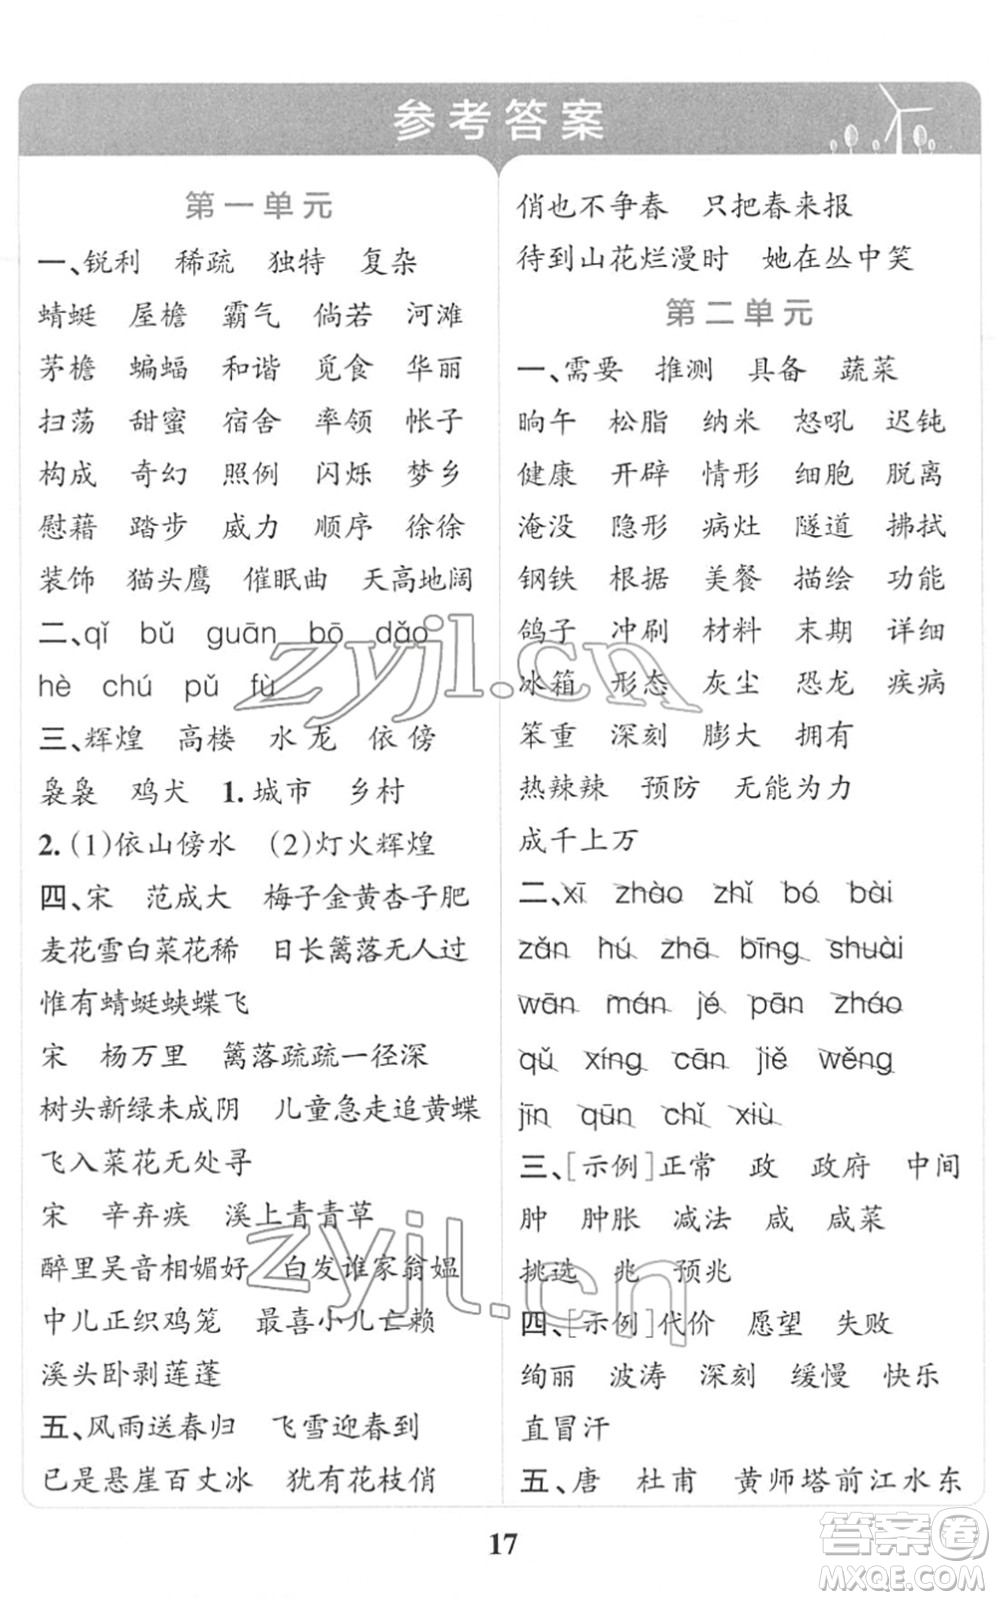 参考答案
第一单元
一、锐利 稀疏 独特 复杂
蜻蜓 屋檐 霸气 倘若 河滩
茅檐 蝙蝠 和谐 觅食 华丽
扫荡 甜蜜 宿舍 率领 帐子
构成 奇幻 照例 闪烁 梦乡
慰藉 踏步 威力 顺序 徐徐
装饰 猫头鹰 催眠曲 天高地阔
二、qǐ bǔ guān bō dǎo
hè chú pǔ fù
三、辉煌 高楼 水龙 依傍
袅袅 鸡犬 1.城市 乡村
2.(1)依山傍水 (2)灯火辉煌
四、宋 范成大 梅子金黄杏子肥
麦花雪白菜花稀 日长篱落无人过
惟有蜻蜓蛱蝶飞
宋 杨万里 篱落疏疏一径深
树头新绿未成阴 儿童急走追黄蝶
飞入菜花无处寻
宋 辛弃疾 溪上青青草
醉里吴音相媚好 白发谁家翁媪
中儿正织鸡笼 最喜小儿亡赖
溪头卧剥莲蓬
五、风雨送春归 飞雪迎春到
已是悬崖百丈冰 犹有花枝俏
俏也不争春 只把春来报
待到山花烂漫时 她在丛中笑
第二单元
一、需要 推测 具备 蔬菜
晌午 松脂 纳米 怒吼 迟钝
健康 开辟 情形 细胞 脱离
淹没 隐形 病灶 隧道 拂拭
钢铁 根据 美餐 描绘 功能
鸽子 冲刷 材料 末期 详细
冰箱 形态 灰尘 恐龙 疾病
笨重 深刻 膨大 拥有
热辣辣 预防 无能为力
成千上万
二、xī zhào zhǐ bó bài
zǎn hú zhā bīng shuài
wān mán jé pān zháo
qǔ xíng cān jiě wěng
jīn qūn chǐ xiù
三、[示例]正常 政 政府 中间
肿 肿胀 减法 咸 咸菜
挑选 兆 预兆
四、[示例]代价 愿望 失败
绚丽 波涛 深刻 缓慢 快乐
直冒汗
五、唐 杜甫 黄师塔前江水东
17
zyjl.cn
zyjl.cn
答案卷
MXQE.COM